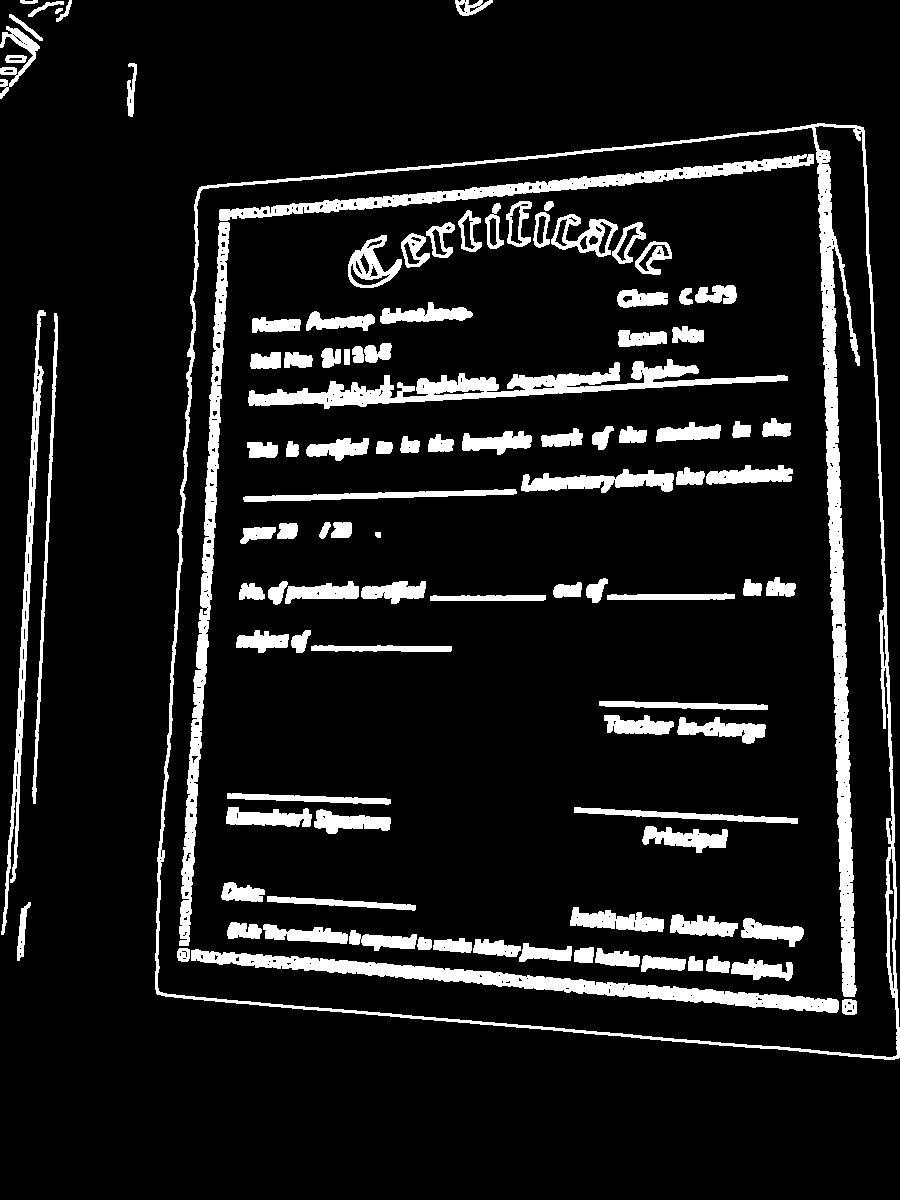 Certificate
Name: Class:
Roll No: Exam No:
Institution Subject :- Database Management System
This is certified to be the bonafide work of the student in the
Laboratory during the academic
year 20 / 20 .
No. of practicals certified out of in the
subject of
Teacher In-charge
Examiner's Signature
Principal
Date:
Institution Rubber Stamp
(N.B: The candidate is expected to retain his/her journal till he/she passes in the subject.)